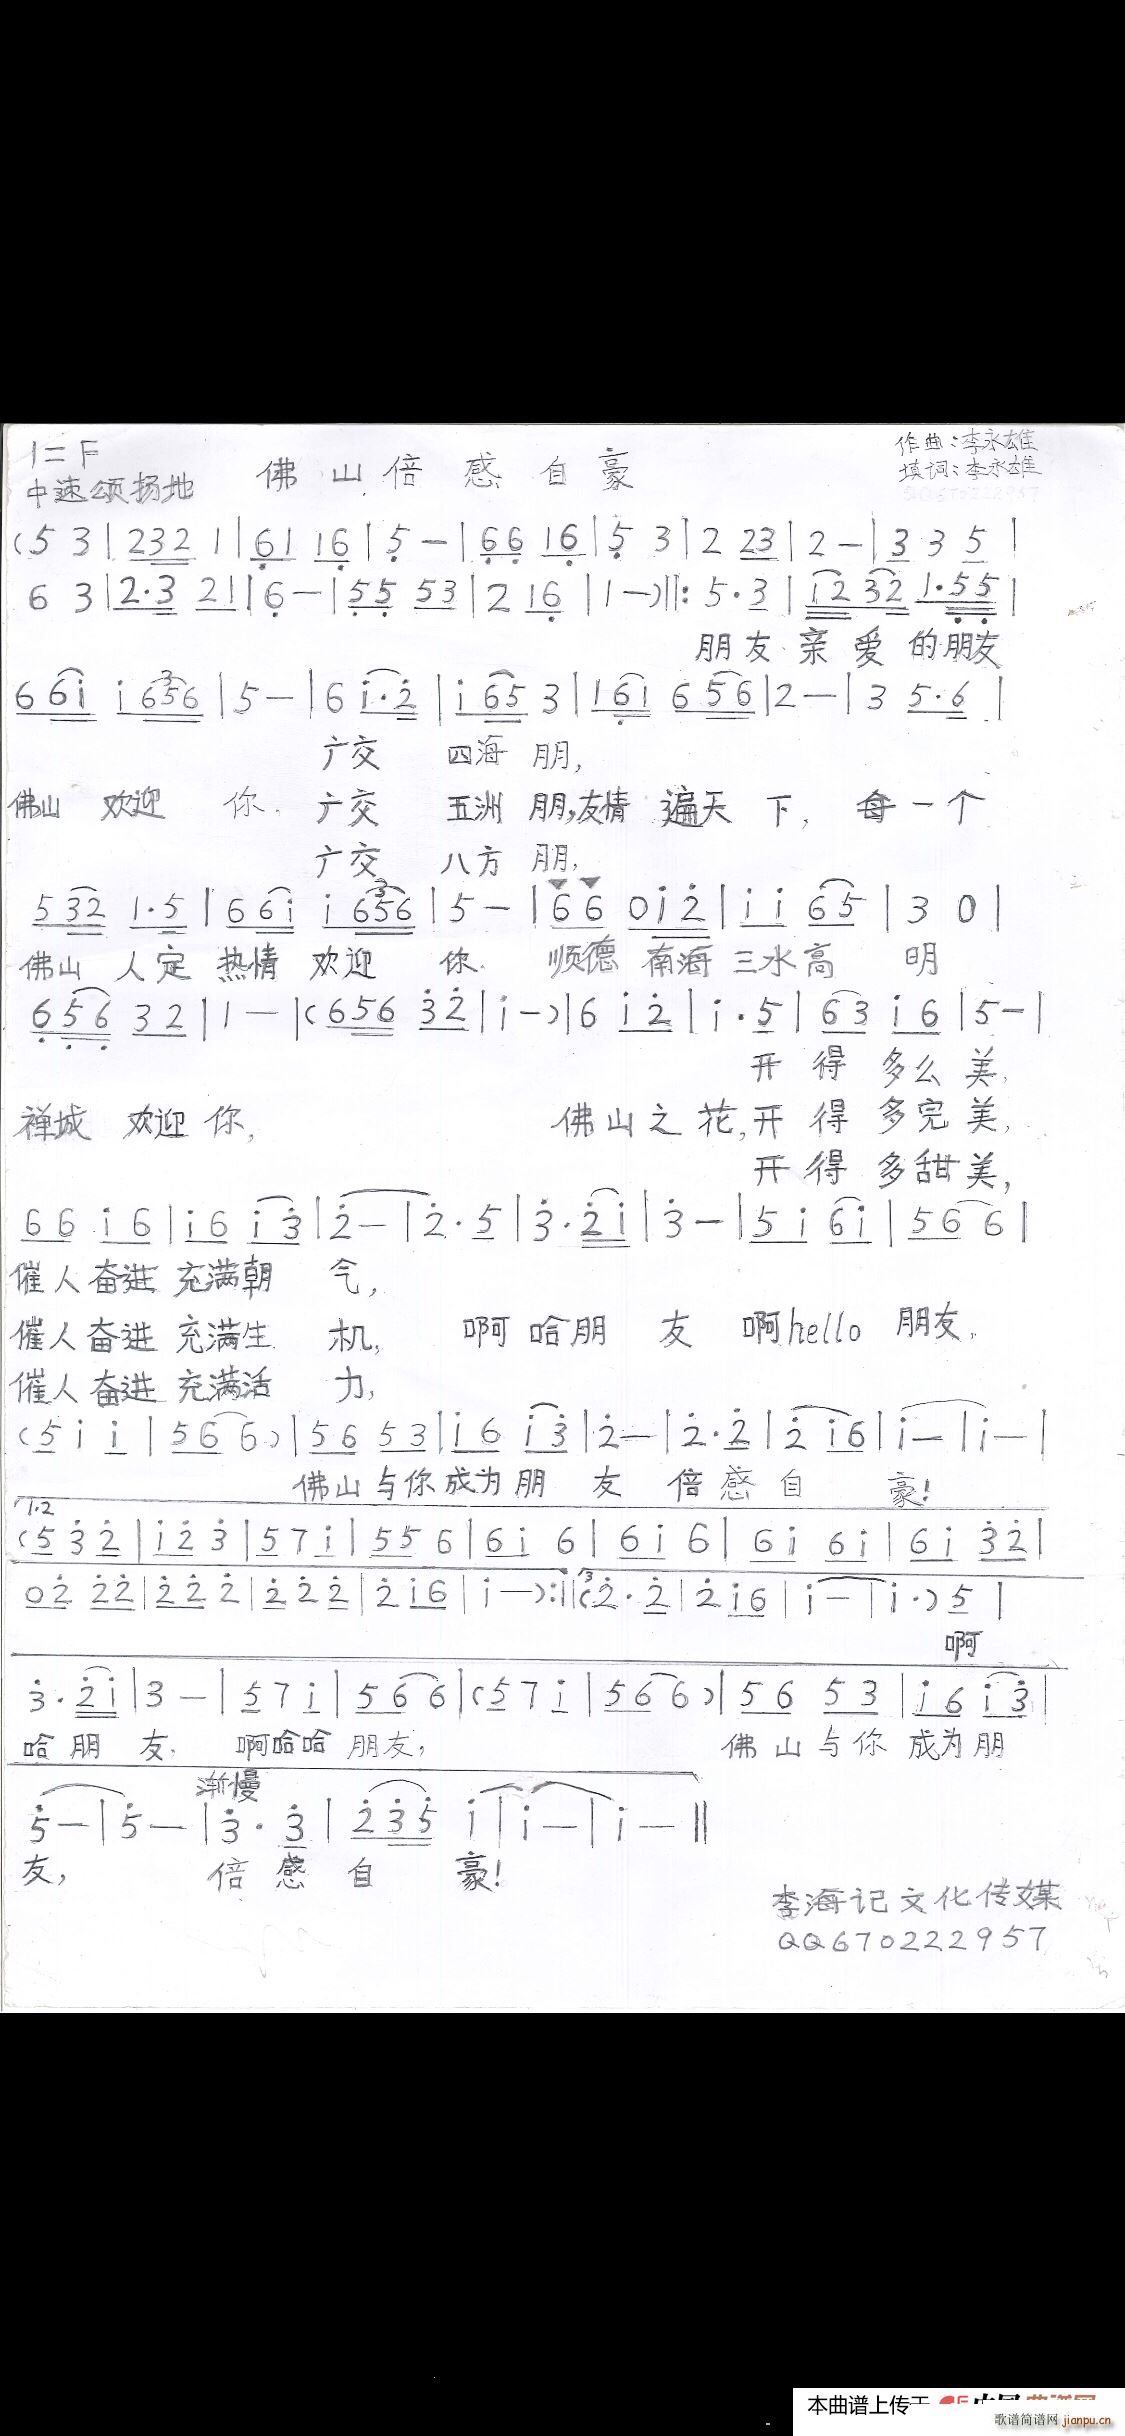 1=F
佛山倍感自豪
作曲:李永雄
中速颂扬地
填词:李永雄
(5 3 | 232 1 | 61 16 | 5 — | 66 16 | 5 3 | 2 23 | 2 — | 3 3 5 |
6 3 | 2·3 21 | 6 — | 55 53 | 2 16 | 1 —) ‖: 5·3 | 12 32 1·55 |
朋友 亲爱的朋友
6 6i i 656 | 5 — | 6 i·2 | i 65 3 | 161 6 56 | 2 — | 3 5·6 |
广交 四海 朋,
佛山 欢迎 你. 广交 五洲 朋,友情 遍天 下, 每一个
广交 八方 朋,
5 32 1·5 | 6 6i i 656 | 5 — | 6 6 0i2 | i i 65 | 3 0 |
佛山 人定 热情 欢迎 你. 顺德 南海 三水高 明
6 56 32 | 1 — | (656 32 | i —) | 6 i2 | i·5 | 63 i6 | 5 — |
开得多么美,
禅城 欢迎你, 佛山之花,开得多完美,
开得多甜美,
66 i6 | i6 i3 | 2 — | 2·5 | 3·2i | 3 — | 5i 6i | 56 6 |
催人奋进 充满朝 气,
催人奋进 充满生 机, 啊哈朋 友 啊hello 朋友,
催人奋进 充满活 力,
(5 i i | 56 6) | 56 53 | i6 i3 | 2 — | 2·2 | 2 i6 | i — | i — |
佛山与你成为朋 友 倍感自 豪!
1·2
(5 3 2 | i2 3 | 5 7 i | 55 6 | 6i 6 | 6i 6 | 6i 6i | 6i 32 |
02 22 | 22 2 | 2 2 2 | 2 i6 | i —) :‖ 3 (2·2 | 2 i6 | i — | i·) 5 |
啊
3·2i | 3 — | 5 7 i | 56 6 | (5 7 i | 56 6) | 56 53 | i6 i3 |
哈朋 友, 啊哈哈 朋友, 佛山与你 成为朋
渐慢
5 — | 5 — | 3·3 | 235 i | i — | i — ‖
友, 倍感自 豪!
李海记文化传媒
QQ670222957
本曲谱上传于
歌谱简谱网 jianpu.cn